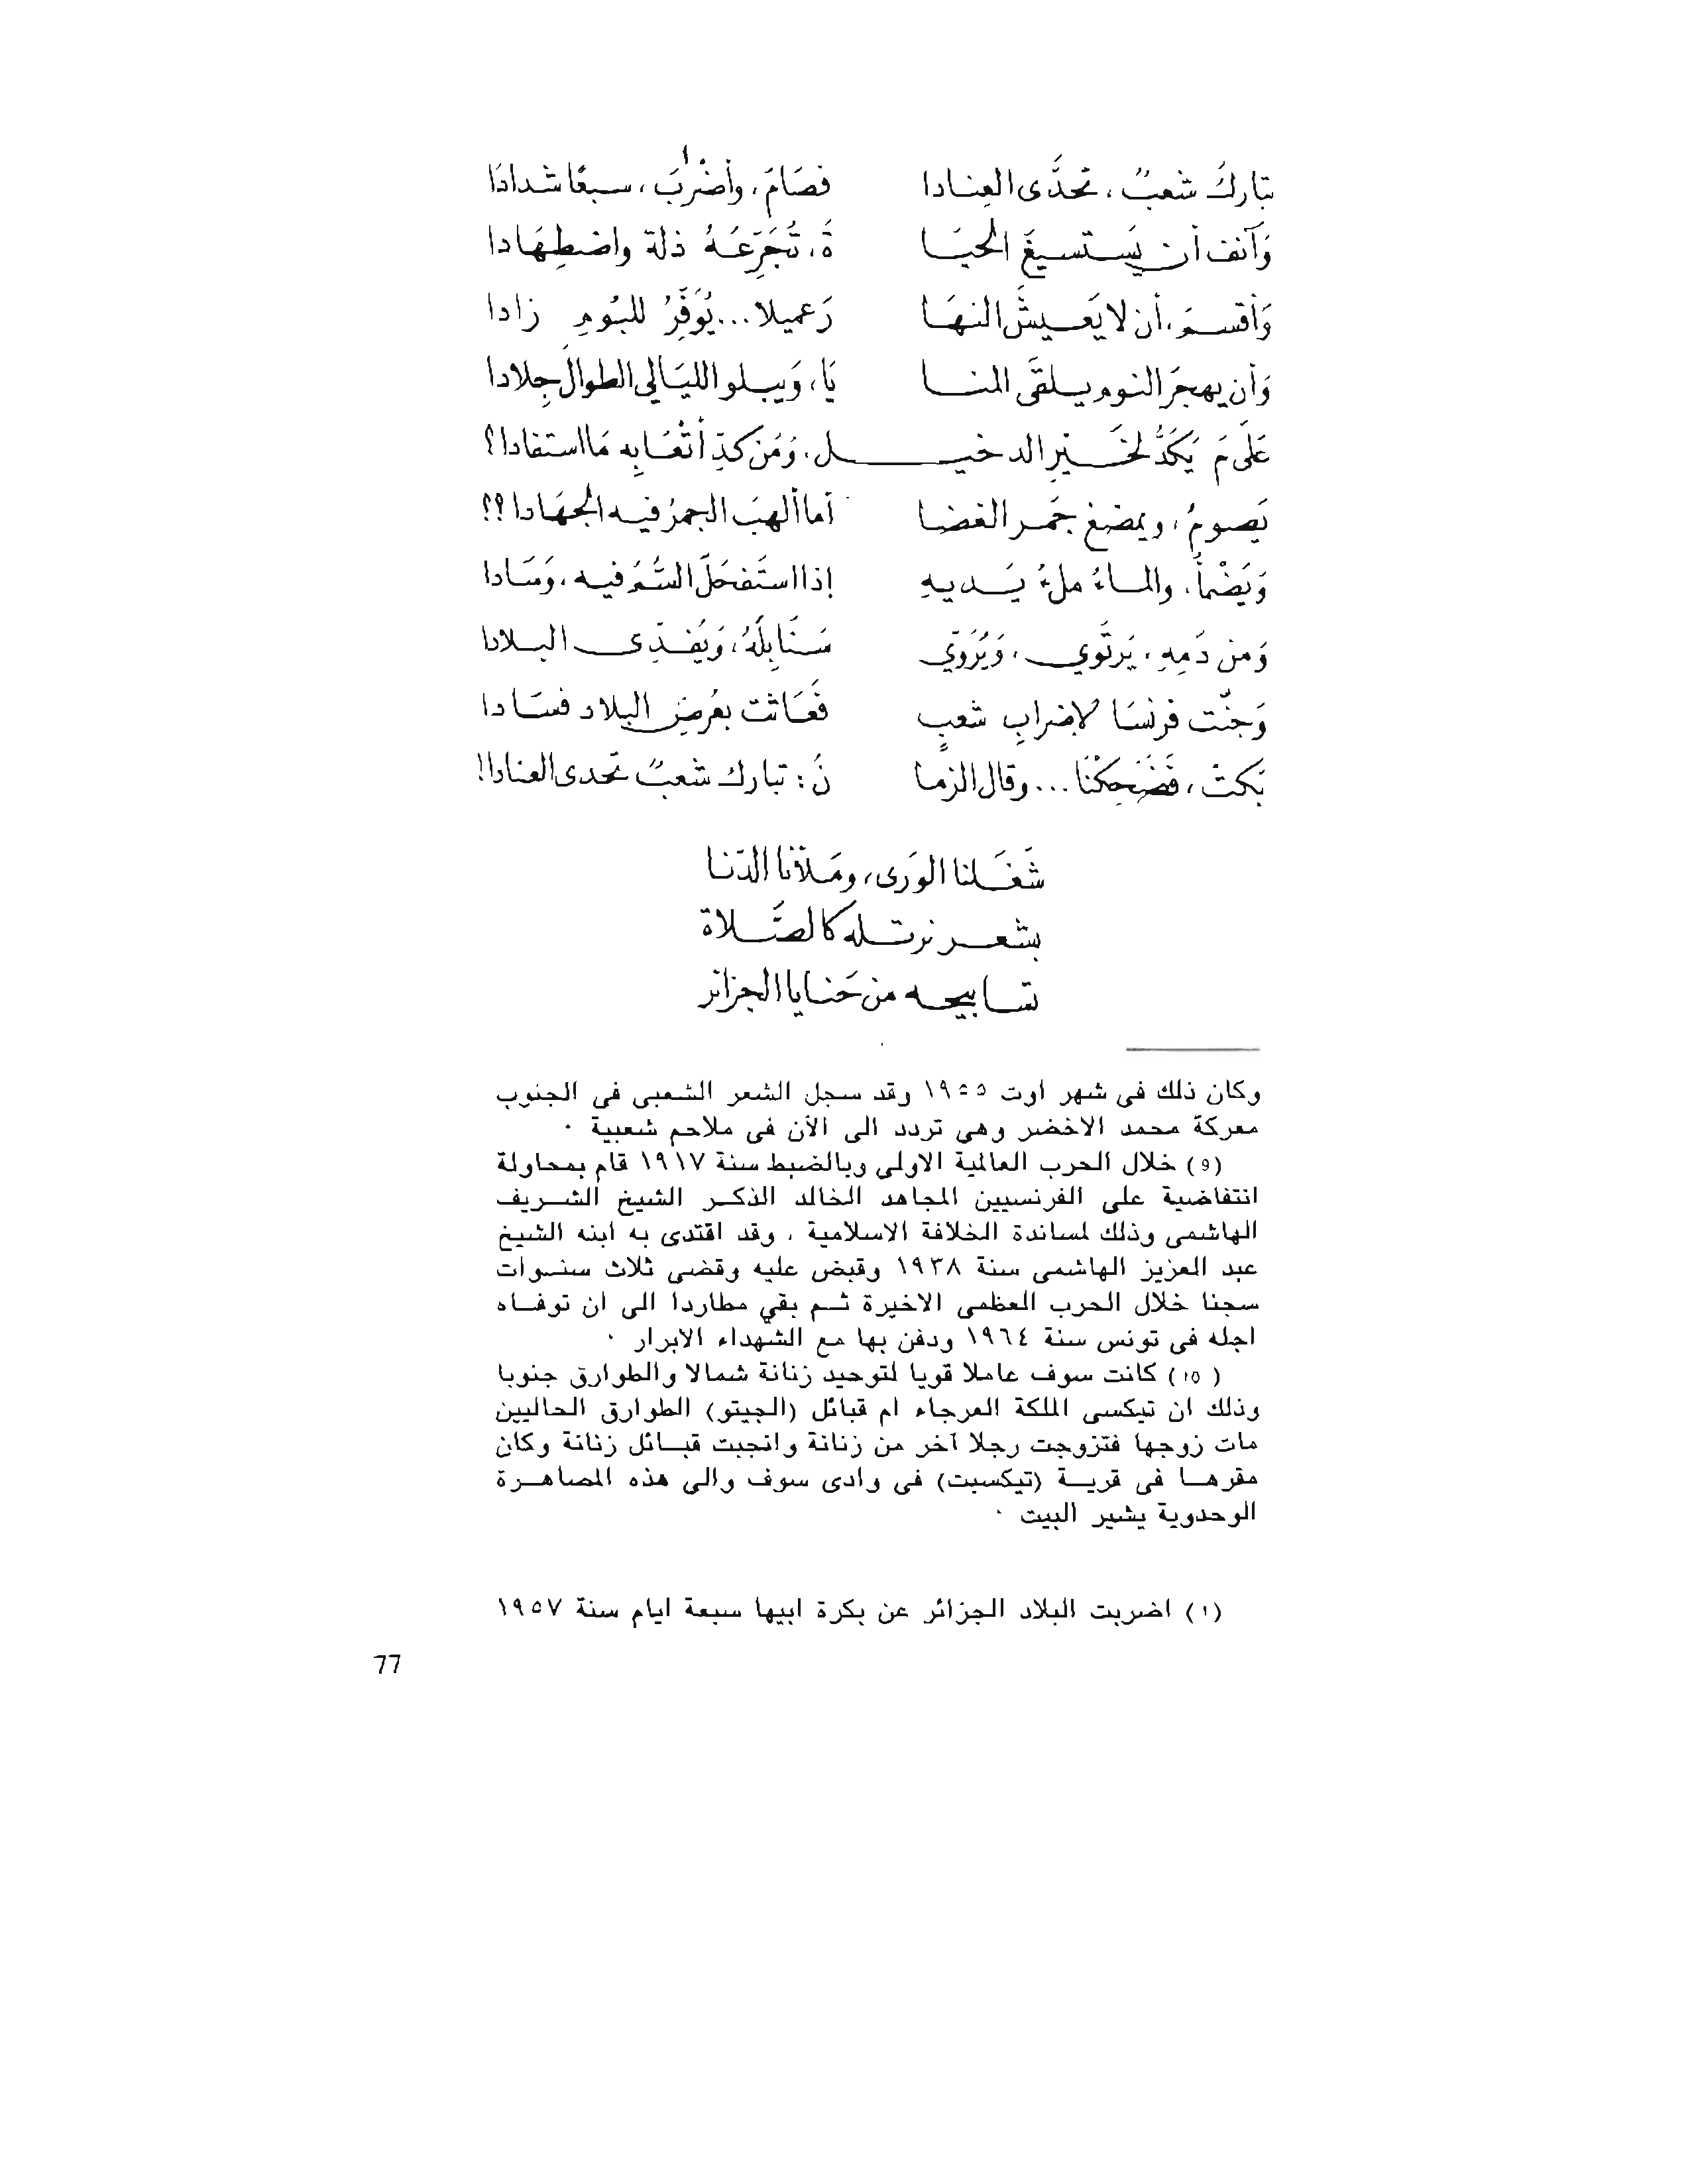 تبَاركَ شعبٌ، تحدَّى العِنادا فصَامَ، وأضْربَ، سبعًا شدادَا
١
وَآنف أن يَستسيغَ الحيَا ةَ، تُجَرِّعَهُ ذلة واضطِهَادا
وَأقسمَ، أن لا يَعيشَ النهَا رَ عميلا... يُوَفِّرُ للبُومِ زادا
وَأن يهجرَ النوم يلقَى المنا يَا، وَيبلو الليَالي الطوالَ جِلادا
عَلَى مَ يَكَدُّ لخَيْرِ الدخيل، وَمَن كدِّ أتْعَابِه مَا استفادا؟
يَصومُ، ويمضغ جَمر الغضا أما ألهبَ الجمرُ فيه الجهَادا؟؟
وَيَضْمأُ، والماءُ ملءُ يَديهِ إذا استَفحَلَ السُّمُ فيه، وَسَادا
وَمن دَمِهِ، يَرتَوي، وَيُرَوّي سَنَابِلَهُ، وَيُفدِّى البلادا
وَجنّت فرنسَا لإضرابِ شعبٍ فَعَاثت بعُرضِ البلاد فسَادا
بَكتْ، فَضَحِكْنَا... وقال الزما نُ: تبارك شعبٌ تحدى العنادا!
شَغَلنا الوَرى، ومَلأنا الدّنا
بشعر نرتله كالصَّلاة
تسابيحه من حَنايا الجزائر
وكان ذلك فى شهر اوت ١٩٥٥ وقد سجل الشعر الشعبى فى الجنوب
معركة محمد الاخضر وهى تردد الى الآن فى ملاحم شعبية ٠
(9) خلال الحرب العالمية الاولى وبالضبط سنة ١٩١٧ قام بمحاولة
انتفاضية على الفرنسيين المجاهد الخالد الذكر الشيخ الشريف
الهاشمى وذلك لمساندة الخلافة الاسلامية ، وقد اقتدى به ابنه الشيخ
عبد العزيز الهاشمى سنة ١٩٣٨ وقبض عليه وقضى ثلاث سنوات
سجنا خلال الحرب العظمى الاخيرة ثم بقي مطاردا الى ان توفاه
اجله فى تونس سنة ١٩٦٤ ودفن بها مع الشهداء الابرار ٠
(10) كانت سوف عاملا قويا لتوحيد زنانة شمالا والطوارق جنوبا
وذلك ان تيكسى الملكة العرجاء ام قبائل (الجيتو) الطوارق الحاليين
مات زوجها فتزوجت رجلا آخر من زنانة وانجبت قبائل زنانة وكان
مقرها فى قرية (تيكسبت) فى وادى سوف والى هذه المصاهرة
الوحدوية يشير البيت ٠
(١) اضربت البلاد الجزائر عن بكرة ابيها سبعة ايام سنة ١٩٥٧
77